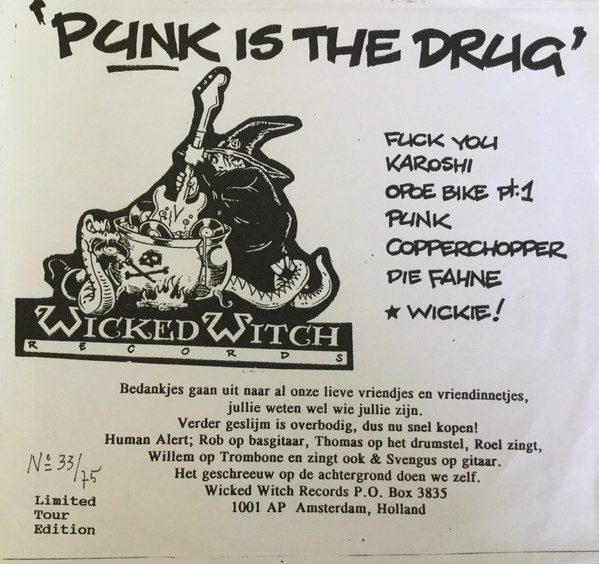 'PUNK IS THE DRUG'
FUCK YOU
KAROSHI
OPOE BIKE pt.1
PUNK
COPPERCHOPPER
DIE FAHNE
★ WICKIE!
WICKED WITCH
RECORDS
Bedankjes gaan uit naar al onze lieve vriendjes en vriendinnetjes,
jullie weten wel wie jullie zijn.
Verder geslijm is overbodig, dus nu snel kopen!
Human Alert; Rob op basgitaar, Thomas op het drumstel, Roel zingt,
Willem op Trombone en zingt ook & Svengus op gitaar.
Het geschreeuw op de achtergrond doen we zelf.
Wicked Witch Records P.O. Box 3835
1001 AP Amsterdam, Holland
Nº 33/75
Limited
Tour
Edition